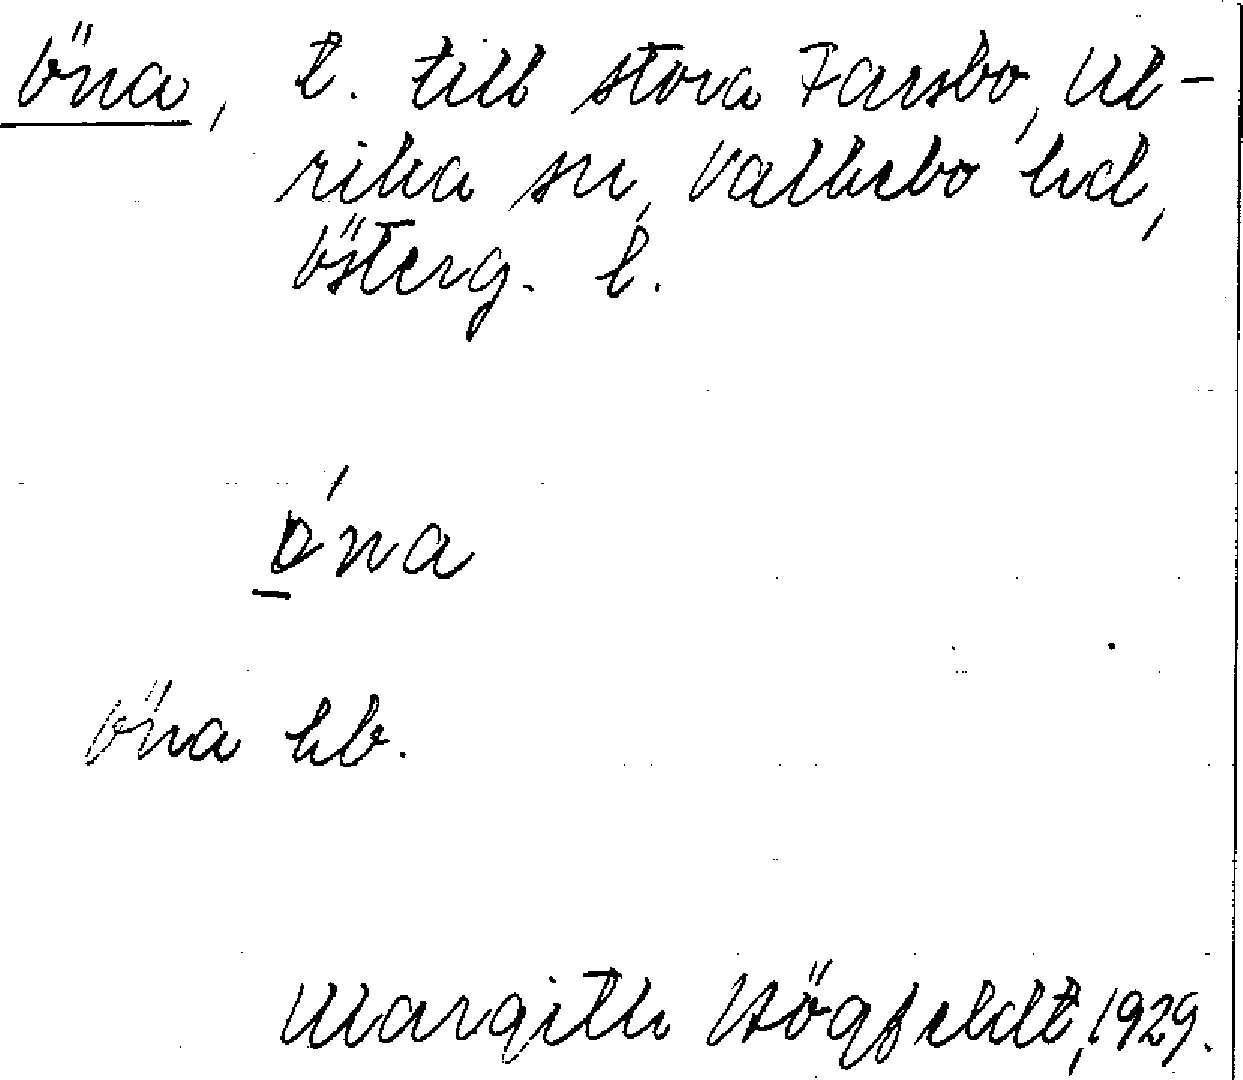 Öna, t. till stora Farsbo, Ul-
rika sn, Valkebo hd,
Österg. l.
öna
Öna hb.
Margith Högfeldt, 1929.